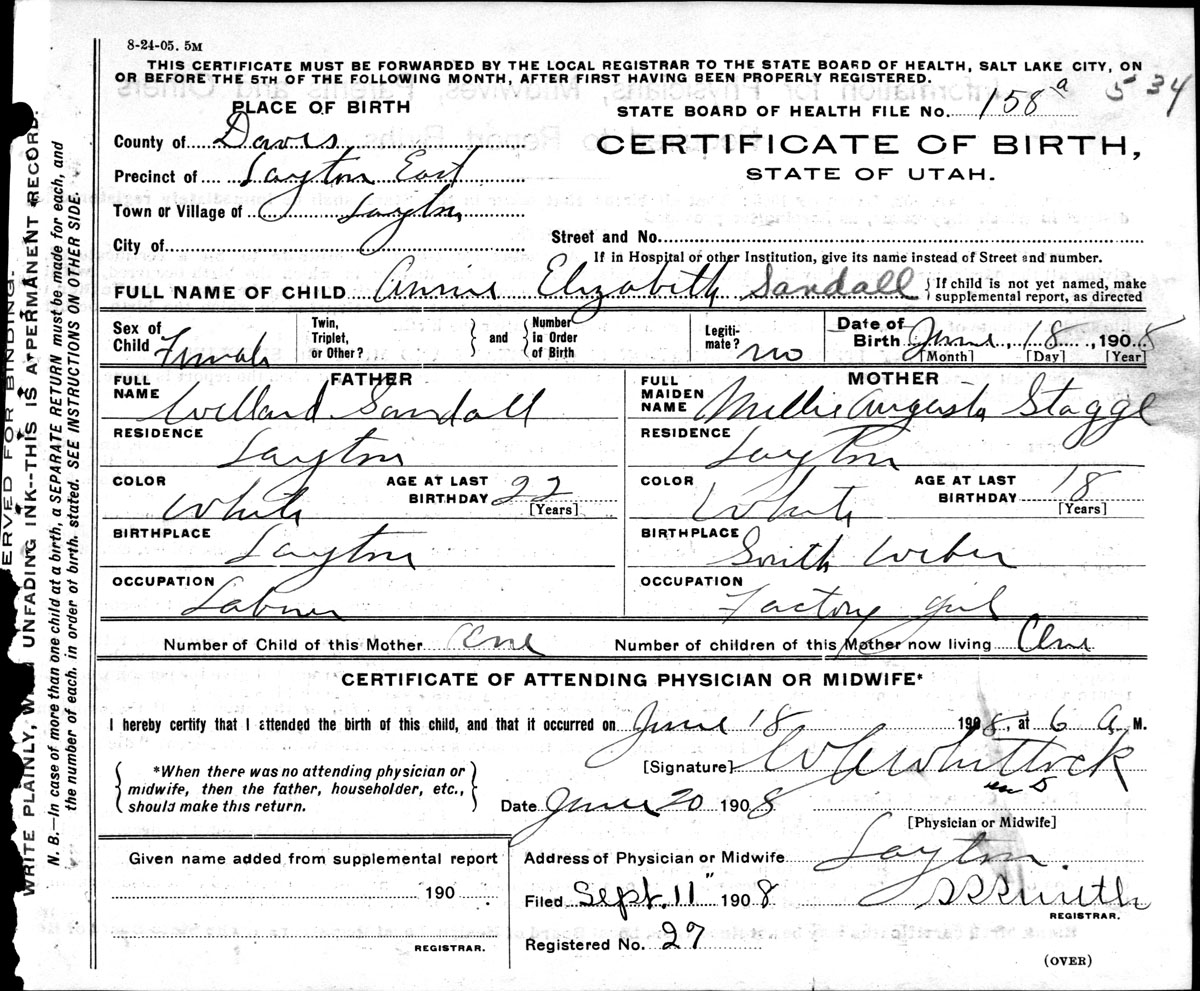 8-24-05. 5M
THIS CERTIFICATE MUST BE FORWARDED BY THE LOCAL REGISTRAR TO THE STATE BOARD OF HEALTH, SALT LAKE CITY, ON
OR BEFORE THE 5TH OF THE FOLLOWING MONTH, AFTER FIRST HAVING BEEN PROPERLY REGISTERED.
534
PLACE OF BIRTH
STATE BOARD OF HEALTH FILE No. 158-a
County of Davis
CERTIFICATE OF BIRTH,
STATE OF UTAH.
Precinct of Layton East
Town or Village of Layton
City of
Street and No.
If in Hospital or other Institution, give its name instead of Street and number.
FULL NAME OF CHILD Annie Elizabeth Sandall
{ If child is not yet named, make
supplemental report, as directed
Sex of Child Female
Twin, Triplet, or Other? } and { Number in Order of Birth
Legiti-mate? no
Date of Birth June 18, 1908
[Month] [Day] [Year]
FATHER
FULL NAME Willard Sandall
RESIDENCE Layton
COLOR White
AGE AT LAST BIRTHDAY 22
[Years]
BIRTHPLACE Layton
OCCUPATION Laborer
MOTHER
FULL MAIDEN NAME Millie Augusta Stagge
RESIDENCE Layton
COLOR White
AGE AT LAST BIRTHDAY 18
[Years]
BIRTHPLACE South Weber
OCCUPATION Factory girl
Number of Child of this Mother One
Number of children of this Mother now living One
CERTIFICATE OF ATTENDING PHYSICIAN OR MIDWIFE*
I hereby certify that I attended the birth of this child, and that it occurred on June 18 1908, at 6 A. M.
{ *When there was no attending physician or
midwife, then the father, householder, etc.,
should make this return. }
[Signature] Whittock
Date June 20 1908
[Physician or Midwife]
Given name added from supplemental report
190
REGISTRAR.
Address of Physician or Midwife Layton.
Filed Sept. 11" 1908
Smith
REGISTRAR.
Registered No. 27
(OVER)
ERVED FOR BINDING.
WRITE PLAINLY, WITH UNFADING INK--THIS IS A PERMANENT RECORD.
N. B.—In case of more than one child at a birth, a SEPARATE RETURN must be made for each, and
the number of each, in order of birth, stated. SEE INSTRUCTIONS ON OTHER SIDE.